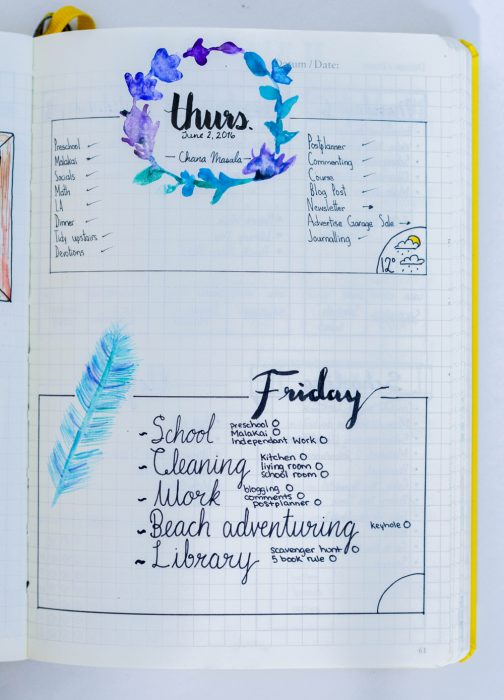 Datum / Date:
thurs.
June 2, 2016
Chana Masala
Preschool
Malakai
Socials
Math
LA
Dinner
Tidy upstairs
Devotions
Postplanner
Commenting
Course
Blog Post
Newsletter
Advertise Garage Sale
Journalling
12°
Friday
~School
preschool
Malakai
Independant Work
~Cleaning
Kitchen
living room
school room
~Work
blogging
comments
postplanner
~Beach adventuring
keyhole
~Library
scavenger hunt
5 book rule
61